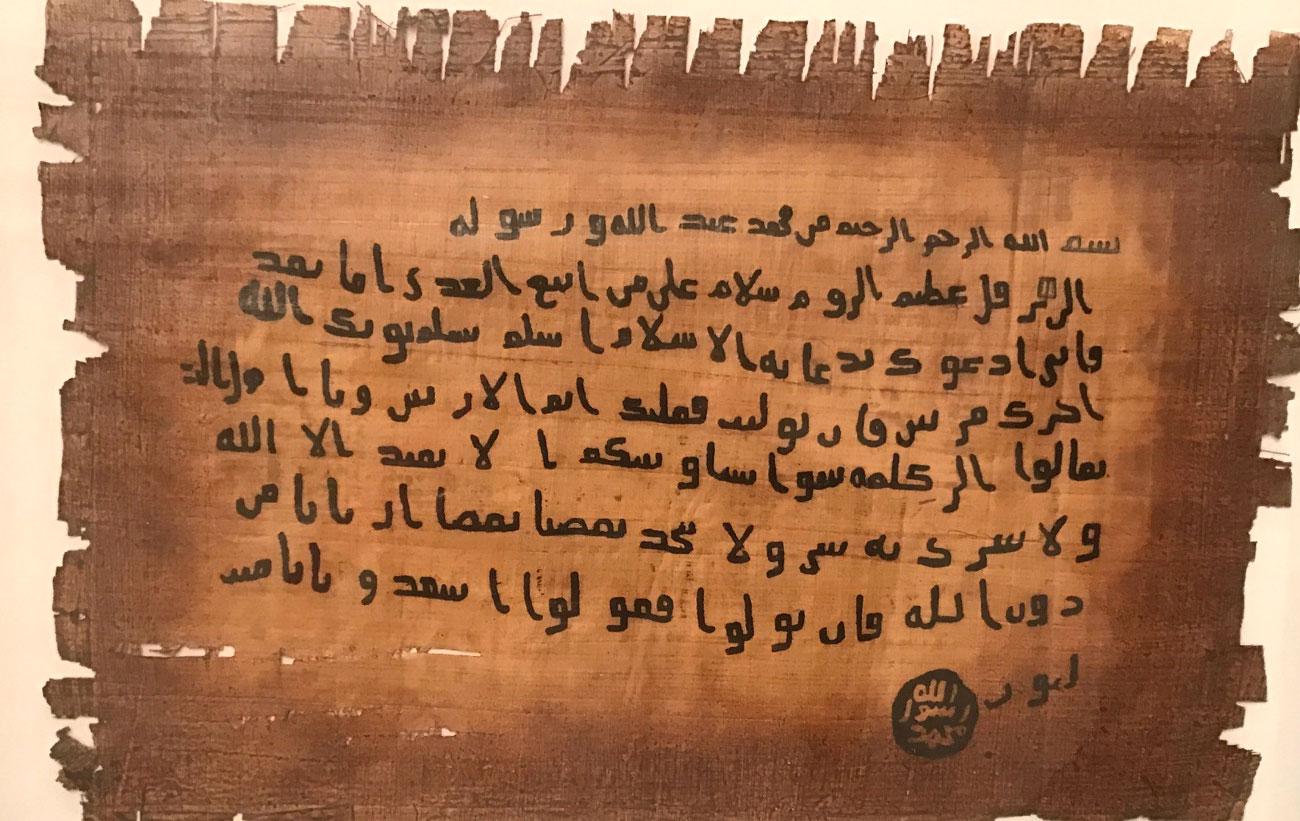 بسم الله الرحمن الرحيم من محمد عبد الله و رسوله
الى هرقل عظيم الروم سلام على من اتبع الهدى اما بعد
فانى ادعوك بدعايه الاسلام اسلم تسلم يوتك الله
اجرك مرتين فان توليت فعليك اثم الاريسين و يا اهل الكتاب
تعالوا الى كلمه سوا بيننا و بينكم ا لا نعبد الا الله
و لا نشرك به شى و لا يتخذ بعضنا بعضا اربابا من
دون الله فان تولوا فقولوا ا شهدوا بانا مسلـ
ـمون
الله
رسول
محمد